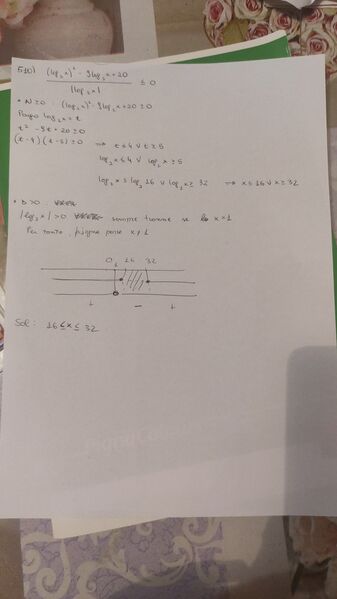 510) (log₂x)² - 9log₂x+20
|log₂x| ≤ 0
• N≥0 : (log₂x)² - 9log₂x+20 ≥0
Pongo log₂x = t
t² - 9t + 20 ≥0
(t-4)(t-5) ≥0 ⇒ t≤4 ∨ t≥5
log₂x≤4 ∨ log₂x ≥5
log₂x ≤ log₂16 ∨ log₂x ≥ log₂32 ⇒ x≤16 ∨ x≥32
• D>0 :
|log₂x| >0 sempre tranne se x=1
Per tanto, bisogna porre x≠1
0 1 16 32
+ - +
Sol: 16 ≤ x ≤ 32